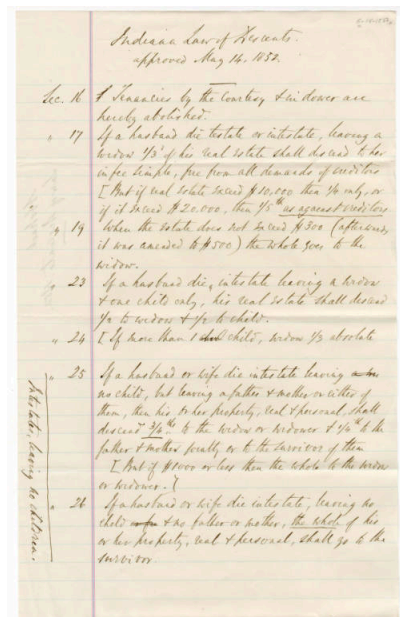 Indiana Law of Descents.
approved May 14. 1852.
Sec. 16 Tenancies by the courtesy & in dower are
hereby abolished.
" 17 If a husband die testate or intestate, leaving a
widow 1/3 of his real estate shall descend to her
in fee simple, free from all demands of creditors
[But if real estate exceed $10,000 then 1/4 only, or
if it exceed $20.000, then 1/5th as against creditors
" 19 When the estate does not exceed $300 (afterwards
it was amended to $500) the whole goes to the
widow.
" 23 If a husband die, intestate leaving a widow
& one child only, his real estate shall descend
1/2 to widow & 1/2 to child.
" 24 [If more than 1 child, widow 1/3 absolute
" 25 If a husband or wife die intestate leaving
no child, but leaving a father & mother or either of
them, then his or her property, real & personal, shall
descend 3/4ths to the widow or widower & 1/4th to the
father & mother jointly or to the survivor of them
[But if $1000 or less then the whole to the widow
or widower.]
" 26 If a husband or wife die intestate, leaving no
child & no father or mother, the whole of his
or her property, real & personal, shall go to the
survivor.
Intestates, leaving no children.